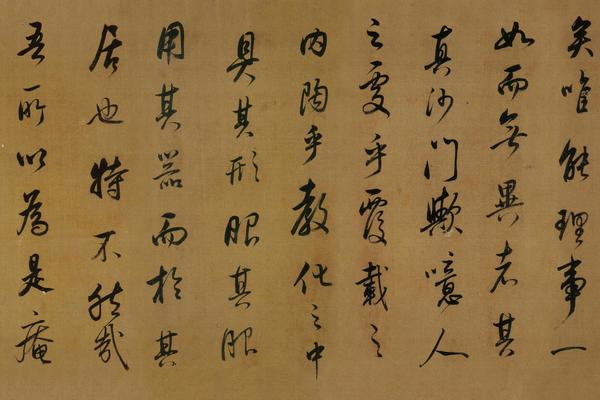 矣唯能理事一
如而無異者其
真沙門歟噫人
之處乎覆載之
内陶乎教化之中
具其形服其服
用其器而於其
居也特不然哉
吾所以為是庵